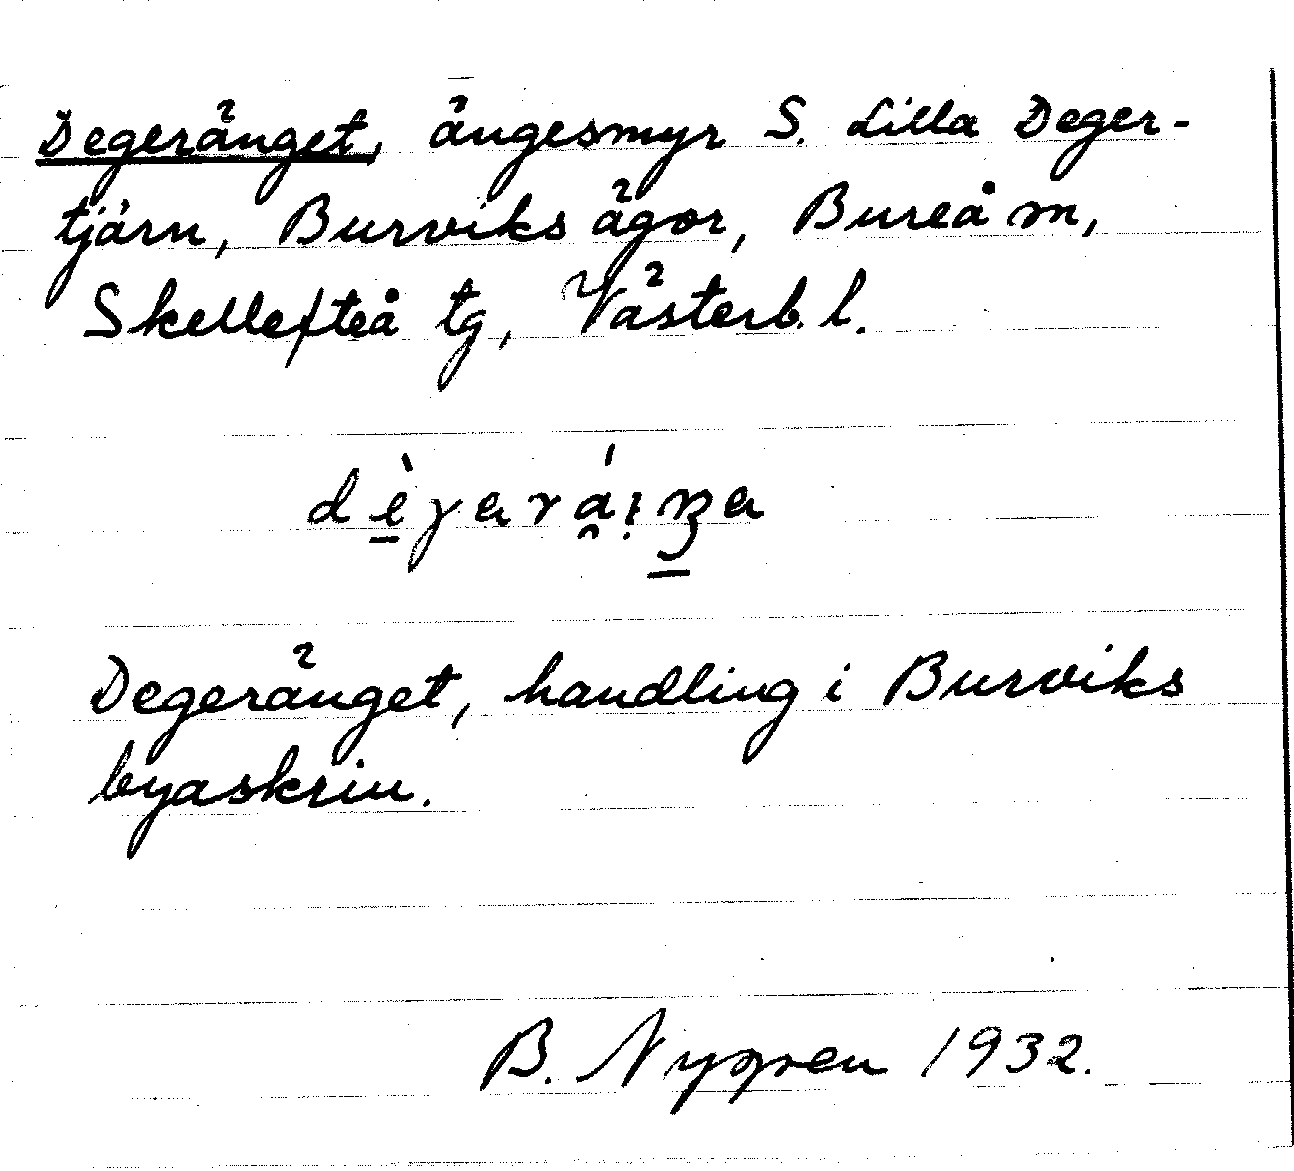 Degeränget, ängesmyr S. Lilla Deger-
tjärn, Burviks ägor, Bureå m,
Skellefteå tg, Västerb. l.
Degeränget, handling i Burviks
byaskrin.
B. Nygren 1932.